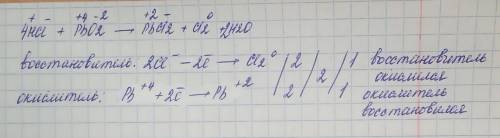 + - +4 -2 +2 - 0
4HCl + PbO2 → PbCl2 + Cl2 + 2H2O
восстановитель: 2Cl⁻ - 2ē → Cl2⁰ / 2 / 2 / 1 восстановитель
окислился
окислитель: Pb⁺⁴ + 2ē → Pb⁺² / 2 / / 1 окислитель
восстановился